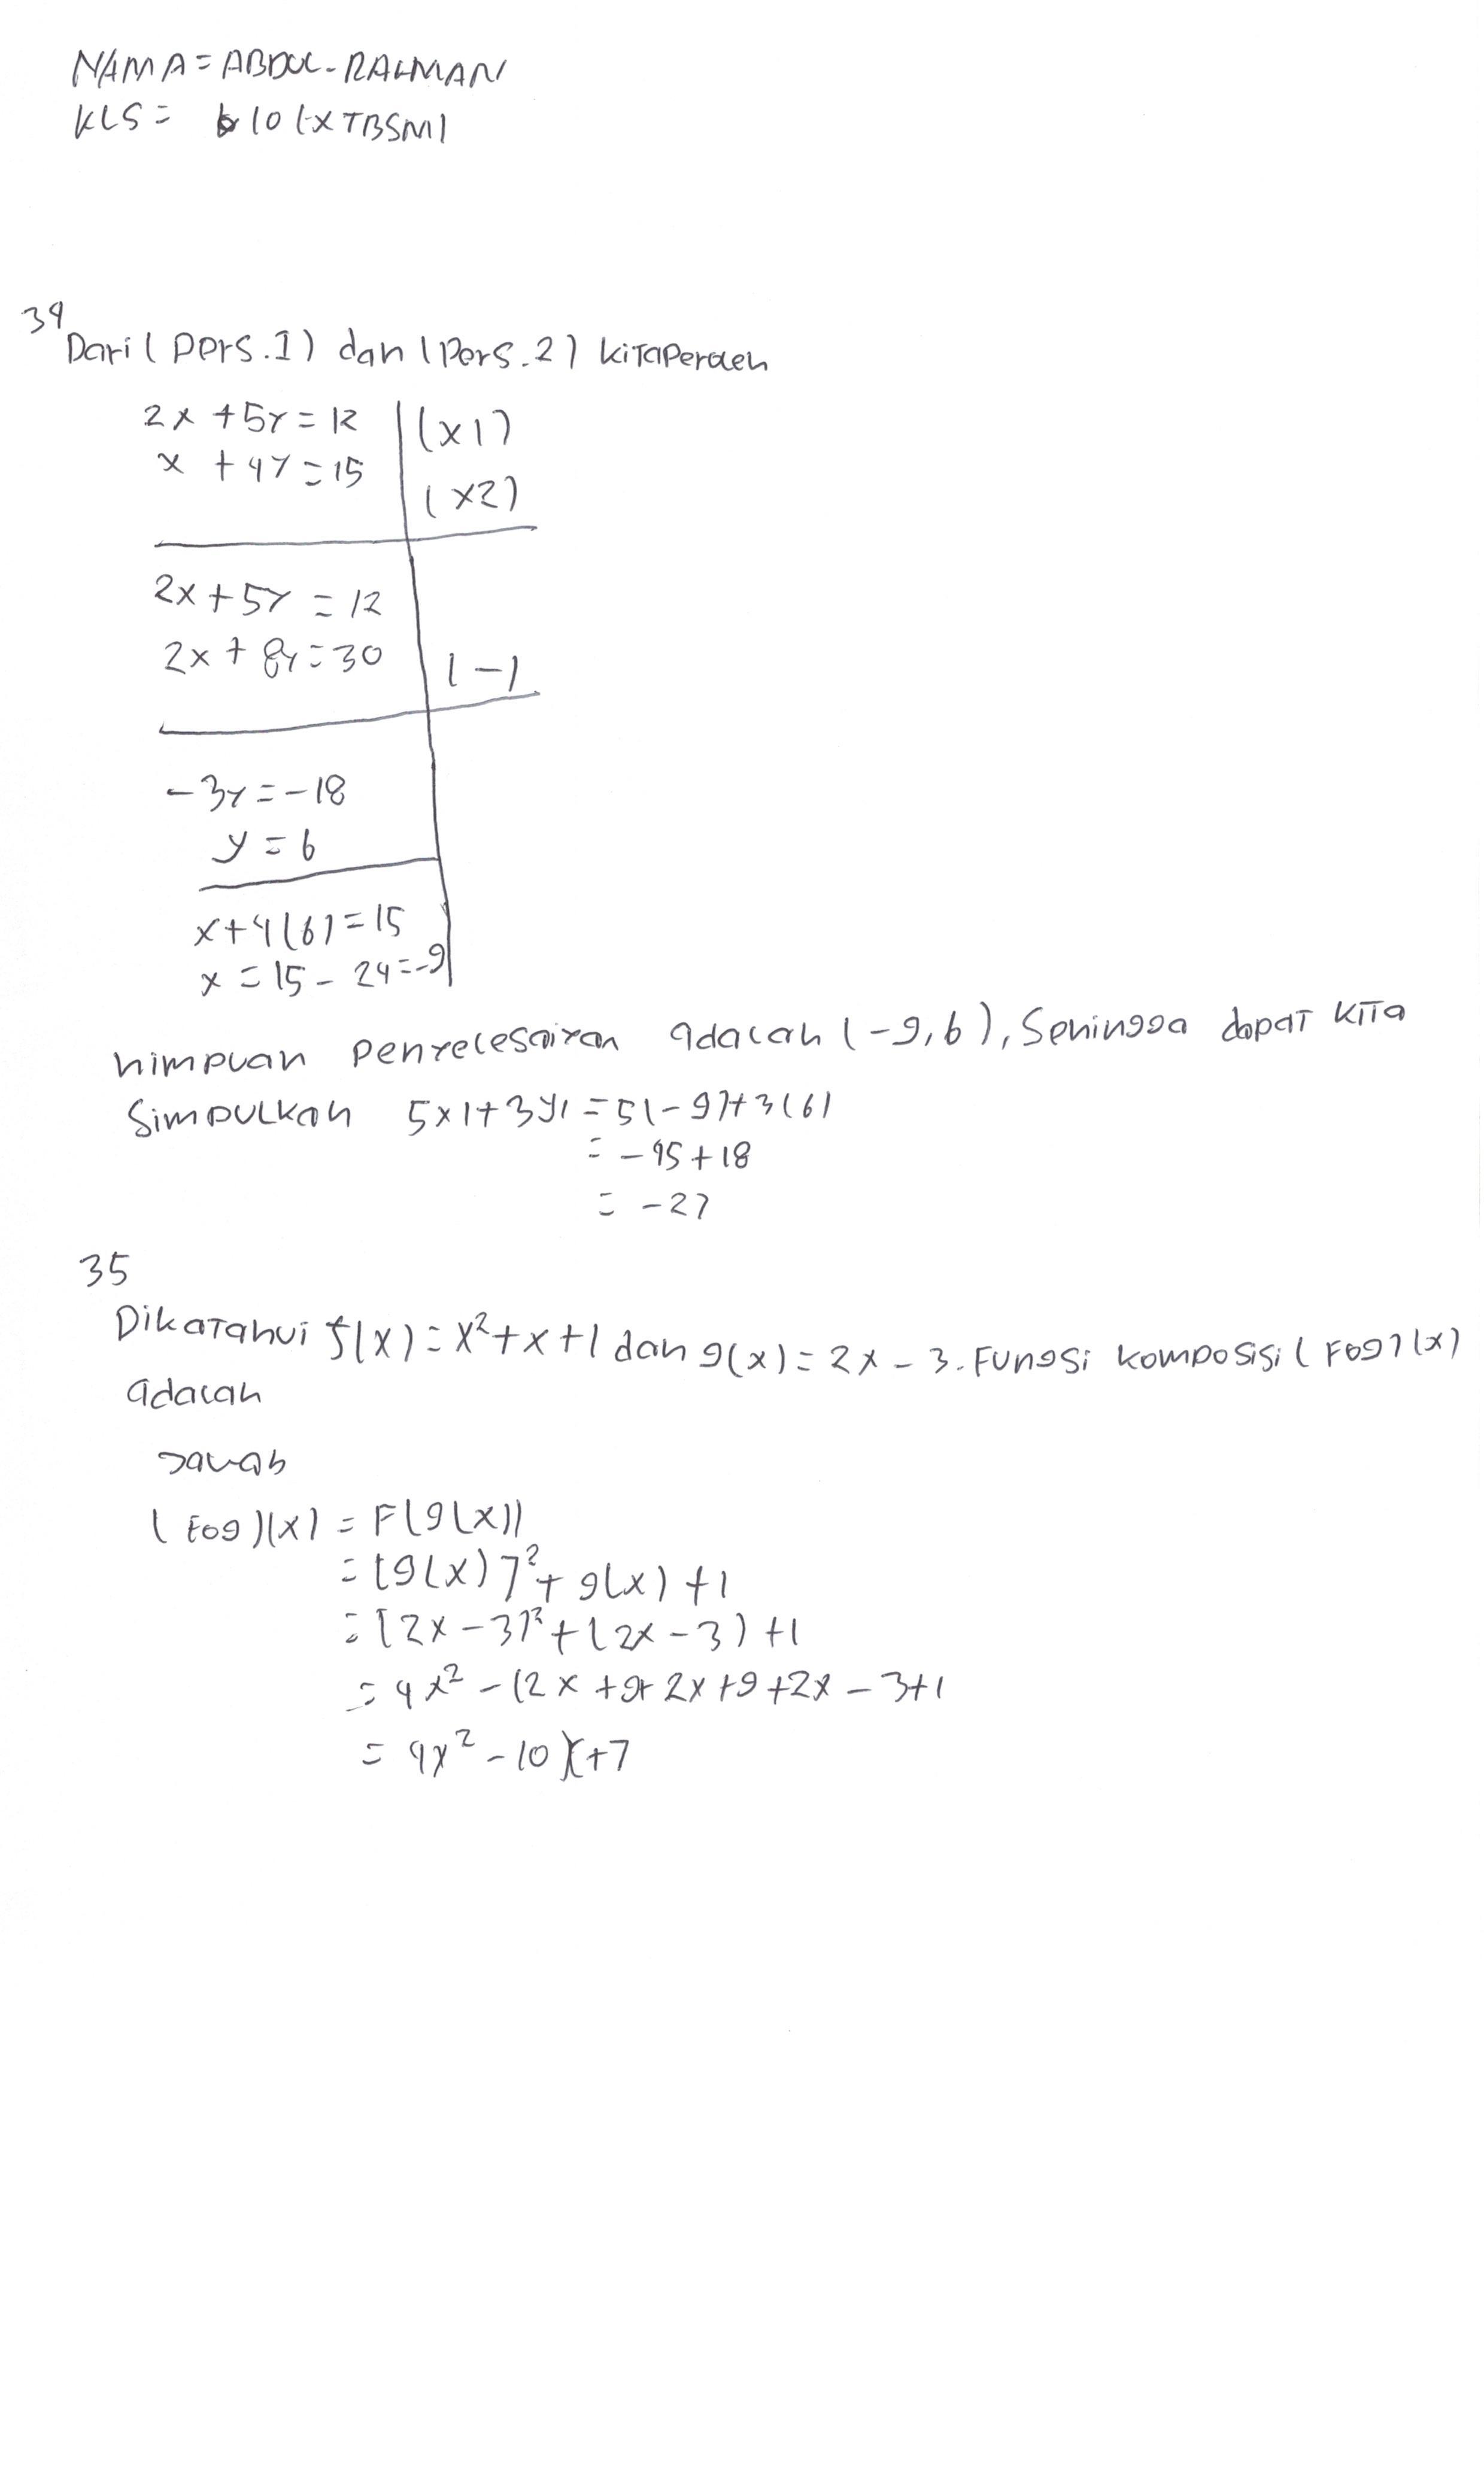 NAMA = ABDUL-RAHMAN
KLS = 10 (X TBSM)
34
Dari (pers.1) dan (Pers.2) kitaperoleh
2x + 5y = 12 | (x1)
x + 4y = 15
(x2)
2x + 5y = 12
2x + 8y = 30 (-)
-3y = -18
y = 6
x + 4(6) = 15
x = 15 - 24 = -9
himpuan penyelesaiyan adalah (-9,6), Sehingga dapat kita
Simpulkan 5x1 + 3y1 = 5(-9) + 3(6)
= -45 + 18
= -27
35
Dikatahui f(x) = x² + x + 1 dan g(x) = 2x - 3. Fungsi komposisi (Fog)(x)
adalah
Jawab
(fog)(x) = F(g(x))
= [g(x)]² + g(x) + 1
= [2x - 3]² + (2x - 3) + 1
= 4x² - 12x + 9 + 2x + 9 + 2x - 3 + 1
= 4x² - 10x + 7